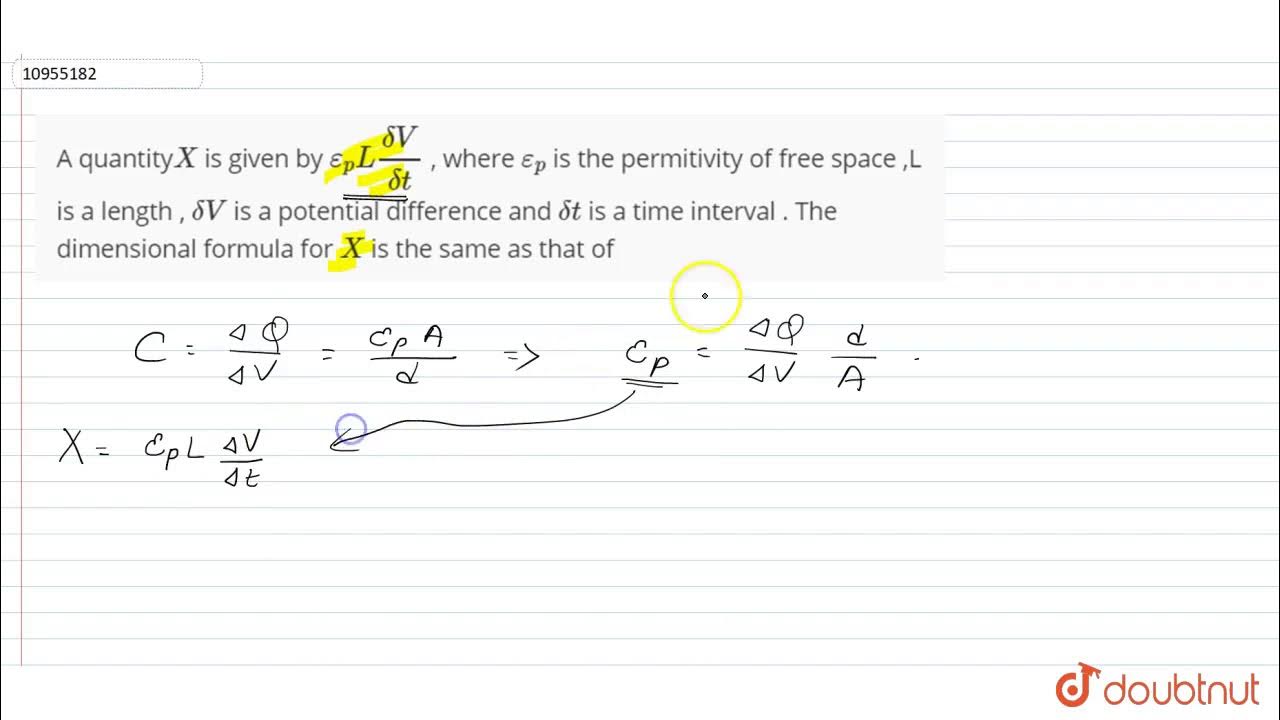 10955182
A quantity X is given by ε_p L δV/δt , where ε_p is the permitivity of free space ,L
is a length , δV is a potential difference and δt is a time interval . The
dimensional formula for X is the same as that of
C = ΔQ/ΔV = ε_p A/d => ε_p = ΔQ/ΔV d/A .
X = ε_p L ΔV/Δt
doubtnut